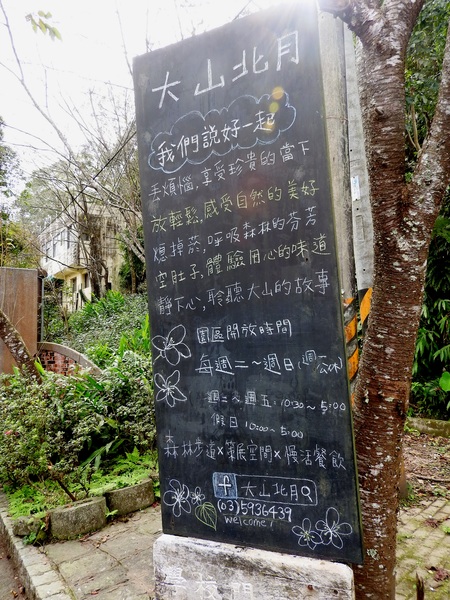 大山北月
我們說好一起
丟煩惱，享受珍貴的當下
放輕鬆，感受自然的美好
熄掉菸，呼吸森林的芬芳
空肚子，體驗用心的味道
靜下心，聆聽大山的故事
園區開放時間
每週二～週日，週一公休
週二～週五：10:30～5:00
假日 10:00～5:00
森林步道×策展空間×慢活餐飲
f 大山北月
(03)5936439
welcome!